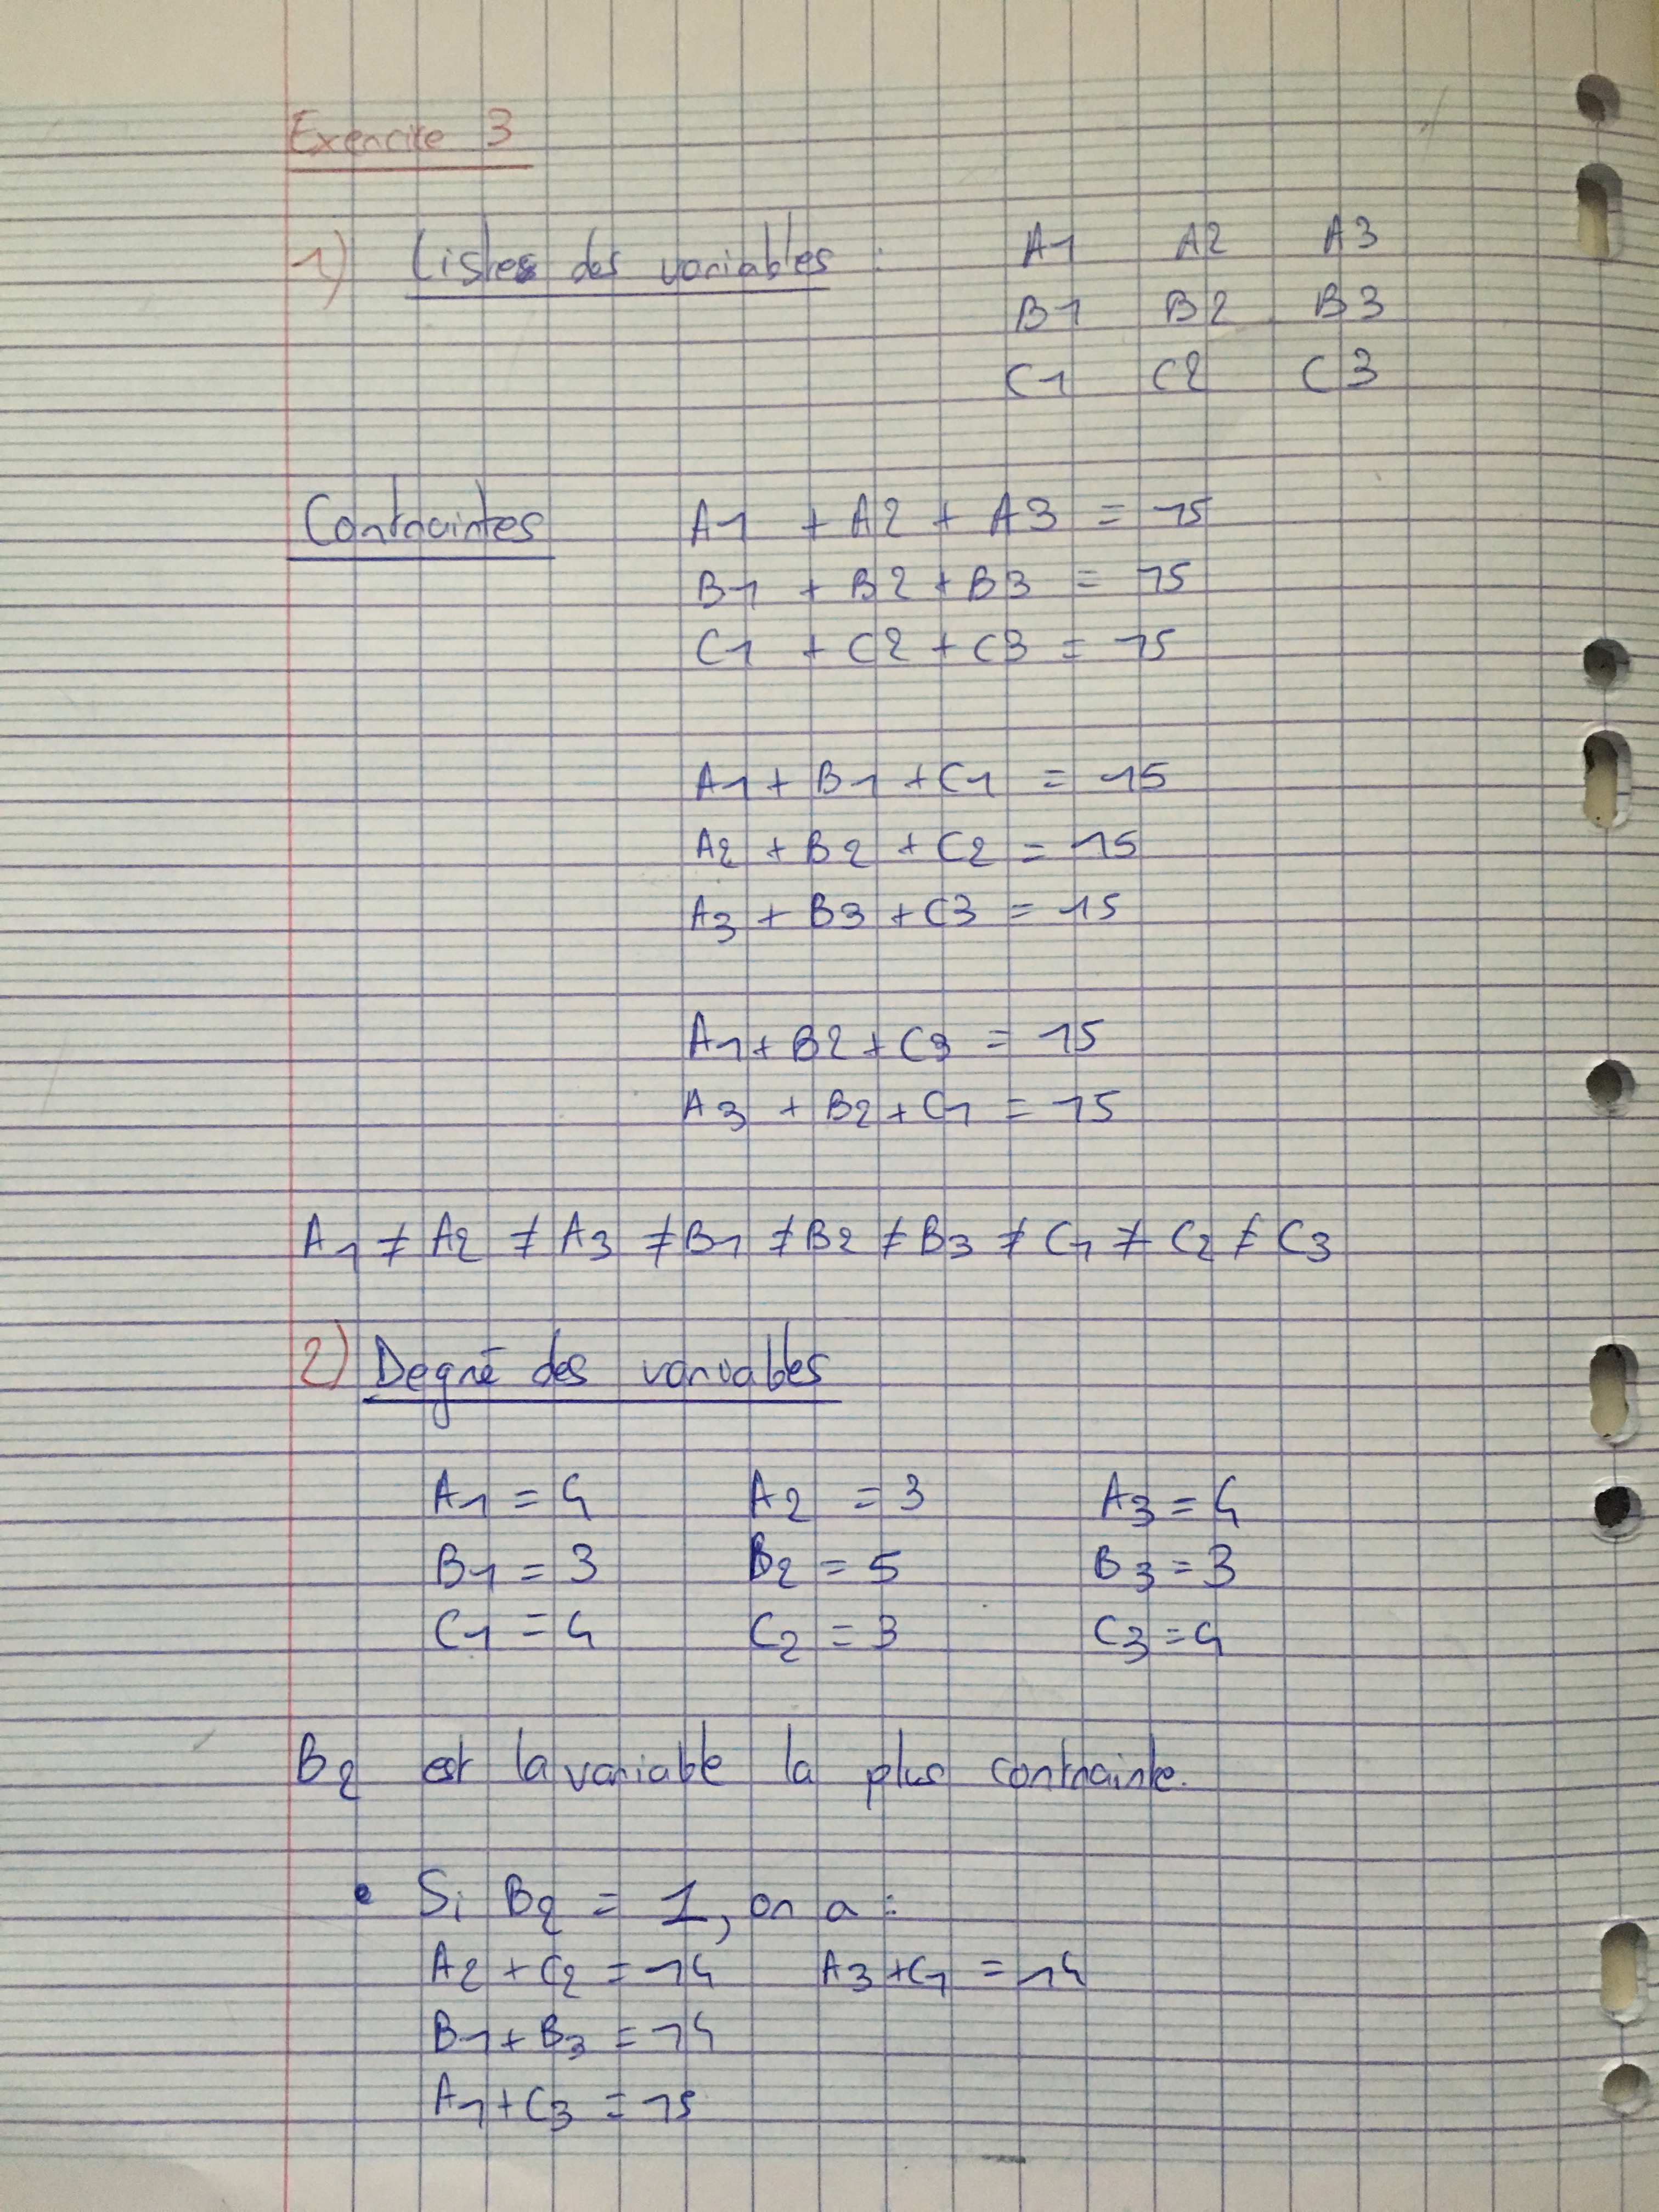 Exercice 3
1) Listes des variables : A1 A2 A3
B1 B2 B3
C1 C2 C3
Contraintes A1 + A2 + A3 = 15
B1 + B2 + B3 = 15
C1 + C2 + C3 = 15
A1 + B1 + C1 = 15
A2 + B2 + C2 = 15
A3 + B3 + C3 = 15
A1 + B2 + C3 = 15
A3 + B2 + C1 = 15
A1 ≠ A2 ≠ A3 ≠ B1 ≠ B2 ≠ B3 ≠ C1 ≠ C2 ≠ C3
2) Degré des variables
A1 = 4 A2 = 3 A3 = 4
B1 = 3 B2 = 5 B3 = 3
C1 = 4 C2 = 3 C3 = 4
B2 est la variable la plus contrainte.
• Si B2 = 1, on a :
A2 + C2 = 14 A3 + C1 = 14
B1 + B3 = 14
A1 + C3 = 15